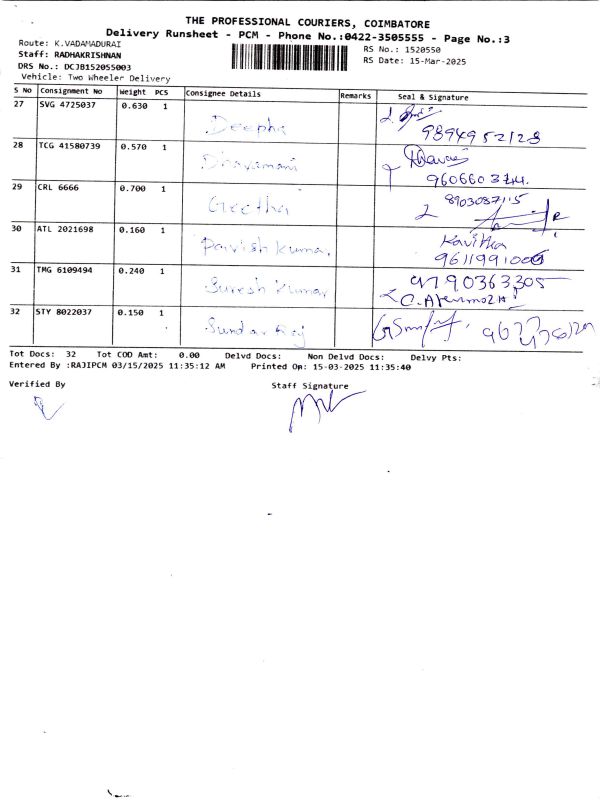 THE PROFESSIONAL COURIERS, COIMBATORE
Delivery Runsheet - PCM - Phone No.:0422-3505555 - Page No.:3
Route: K.VADAMADURAI
RS No.: 1520550
Staff: RADHAKRISHNAN
RS Date: 15-Mar-2025
DRS No.: DCJB152055003
Vehicle: Two Wheeler Delivery
S No Consignment No Weight PCS Consignee Details Remarks Seal & Signature
27 SVG 4725037 0.630 1 Deepha 9894952128
28 TCG 41580739 0.570 1 Dhavamani
29 CRL 6666 0.700 1 Geetha
30 ATL 2021698 0.160 1 Kavitha
31 TMG 6109494 0.240 1 Suresh Kumar 9790363305
32 STY 8022037 0.150 1 Sundar Raj
Tot Docs: 32 Tot COD Amt: 0.00 Delvd Docs: Non Delvd Docs: Delvy Pts:
Entered By :RAJIPCM 03/15/2025 11:35:12 AM Printed On: 15-03-2025 11:35:40
Verified By Staff Signature